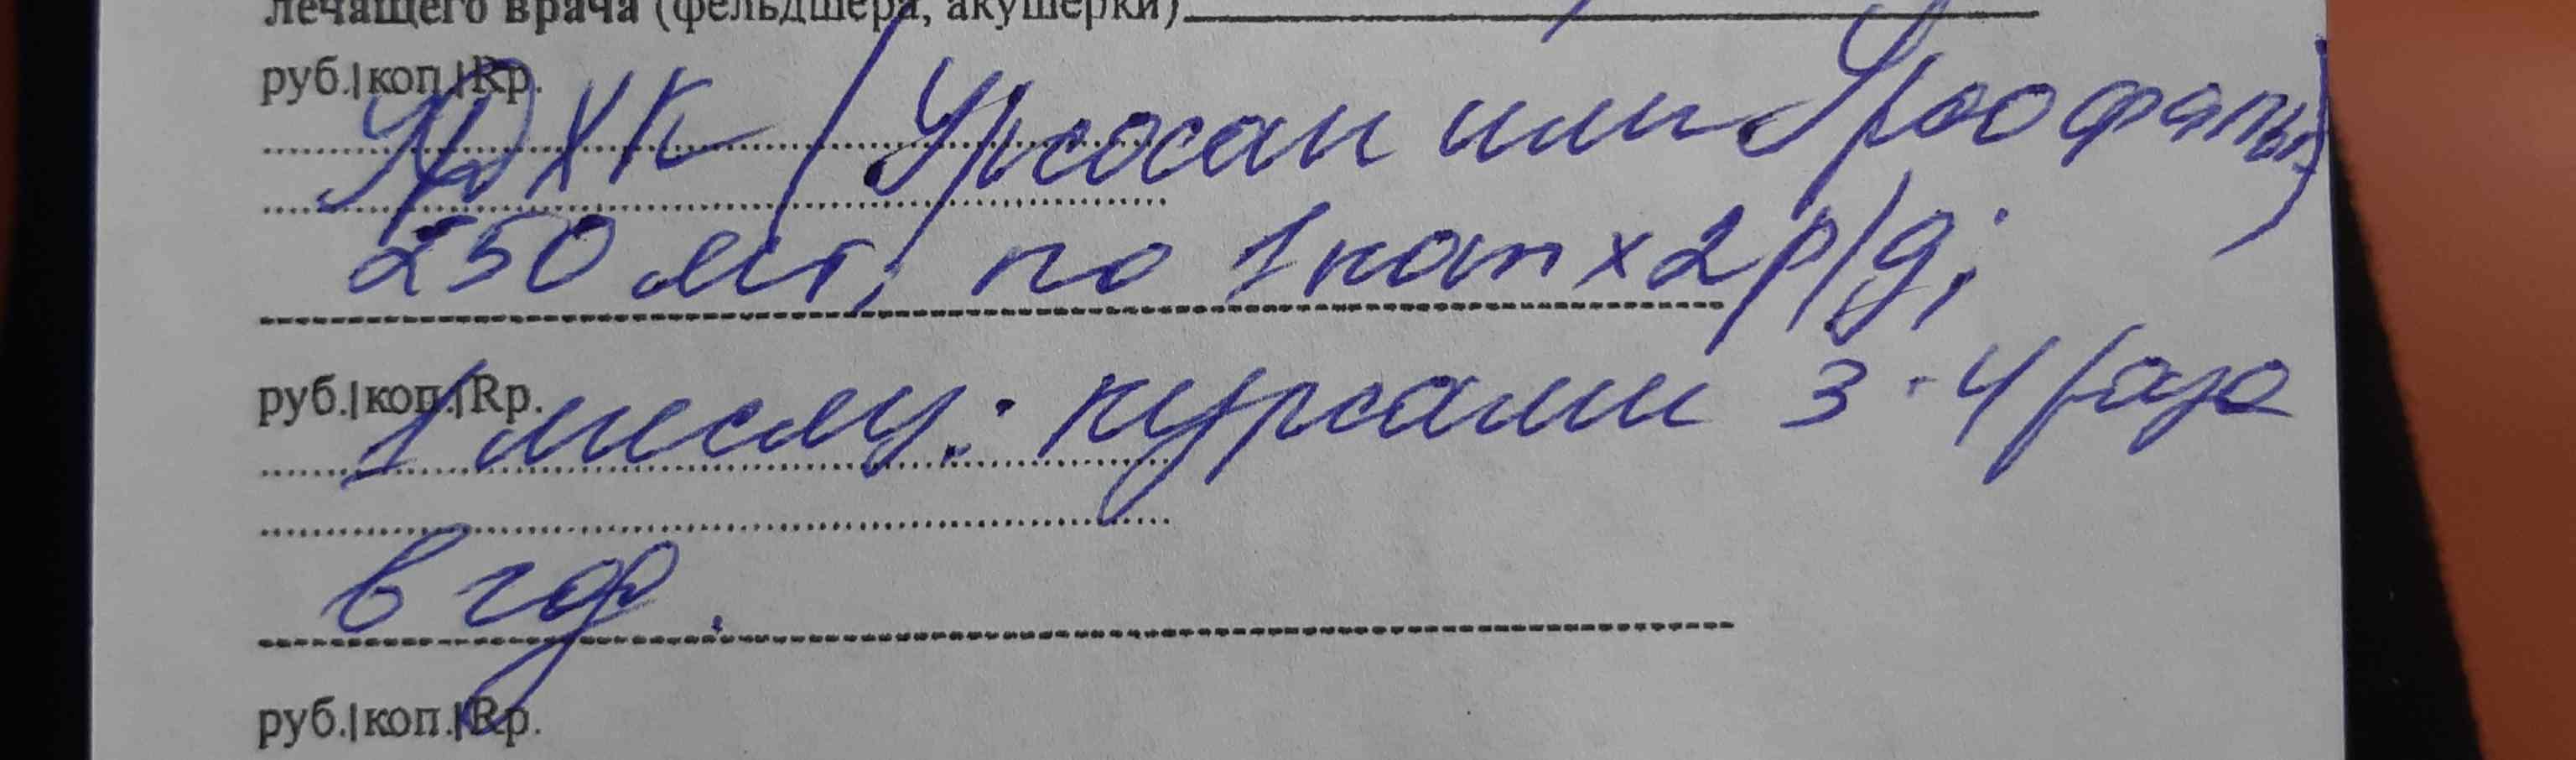 лечащего врача (фельдшера, акушерки)
руб.|коп.|Rp.
УДХК (Урсосан или Урсофальк)
250 мг; по 1 кап х 2 р/д;
руб.|коп.|Rp.
1 месяц: курсами 3-4 раза
в год.
руб.|коп.|Rp.